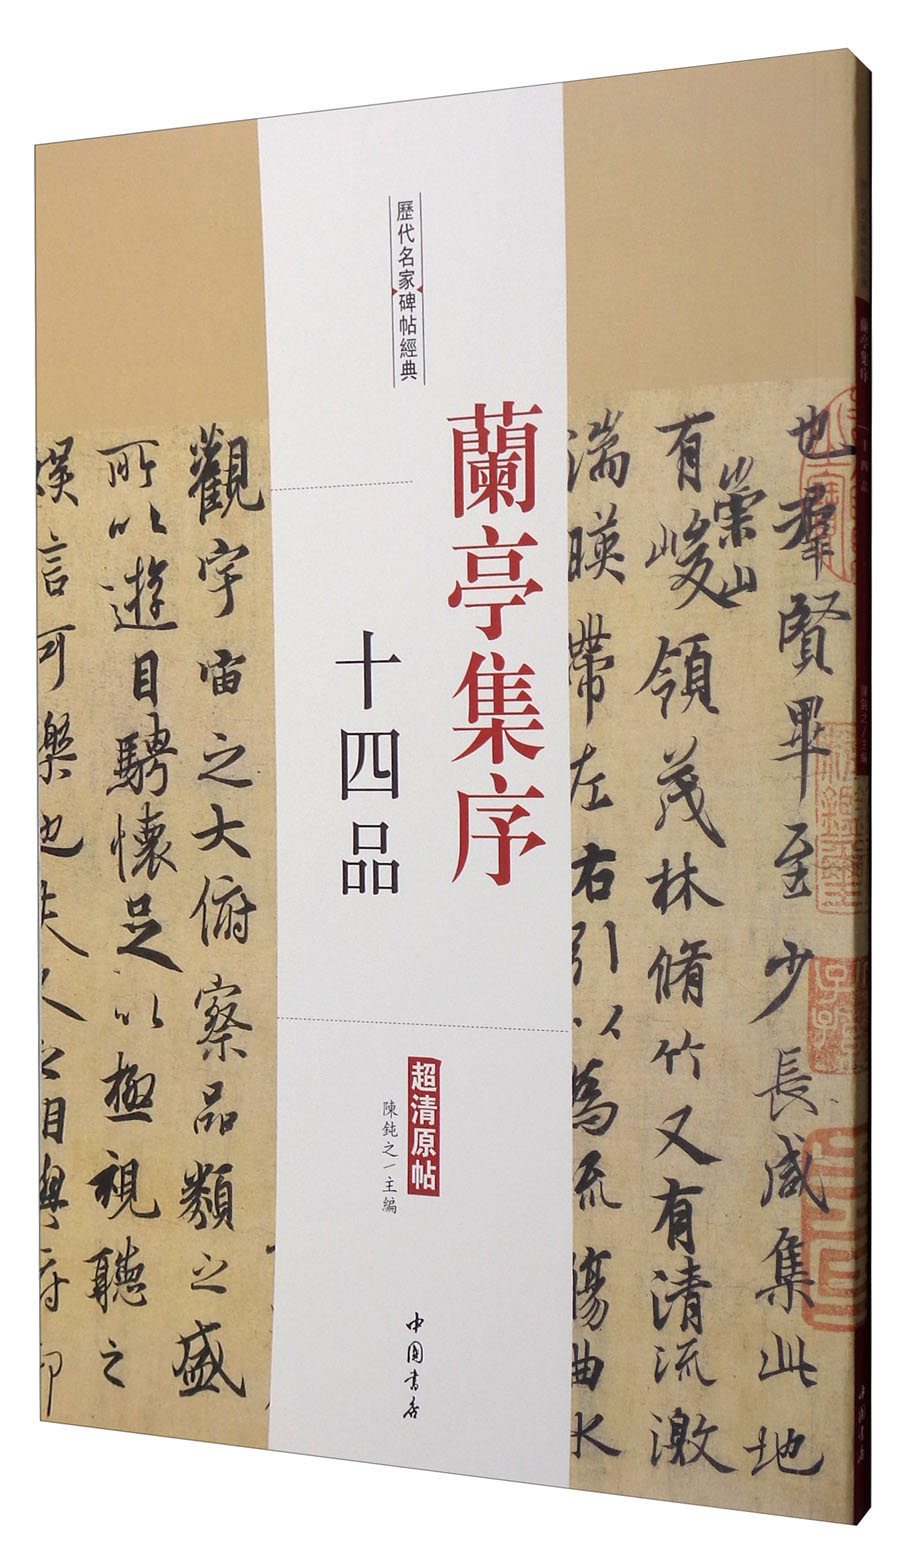 歷代名家碑帖經典
蘭亭集序
十四品
超清原帖
陳鈍之/主編
中國書店
也羣賢畢至少長咸集此地
有峻領茂林脩竹又有清流激
崇山
湍暎帶左右引以為流觴曲水
觀宇宙之大俯察品類之盛
所以遊目騁懷足以極視聽之
娛信可樂也夫人之相與俯仰
蘭亭集序
十四品
陳鈍之/主編
中國書店